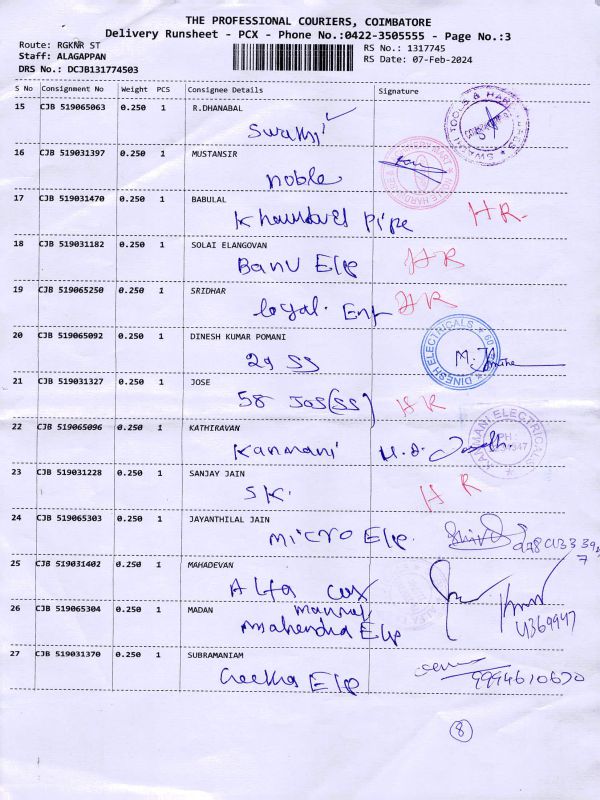 THE PROFESSIONAL COURIERS, COIMBATORE
Delivery Runsheet - PCX - Phone No.:0422-3505555 - Page No.:3
Route: RGKNR ST
RS No.: 1317745
Staff: ALAGAPPAN
RS Date: 07-Feb-2024
DRS No.: DCJB131774503
S No Consignment No Weight PCS Consignee Details Signature
15 CJB 519065063 0.250 1 R.DHANABAL
Swathi
SWATHI TOOLS & HARDWARES
16 CJB 519031397 0.250 1 MUSTANSIR
Noble
17 CJB 519031470 0.250 1 BABULAL
Pipe HR
18 CJB 519031182 0.250 1 SOLAI ELANGOVAN
Banu Elp HR
19 CJB 519065250 0.250 1 SRIDHAR
loyal. Ent HR
20 CJB 519065092 0.250 1 DINESH KUMAR POMANI
29 SS
DINESH ELECTRICALS
21 CJB 519031327 0.250 1 JOSE
58 Jos (SS) HR
22 CJB 519065096 0.250 1 KATHIRAVAN
Kanmani
KANMANI ELECTRICALS
23 CJB 519031228 0.250 1 SANJAY JAIN
SK. HR
24 CJB 519065303 0.250 1 JAYANTHILAL JAIN
Micro Elp.
25 CJB 519031402 0.250 1 MAHADEVAN
Alfa
26 CJB 519065304 0.250 1 MADAN
Mahendra Elp
27 CJB 519031370 0.250 1 SUBRAMANIAM
Geetha Elp 9994610670
8